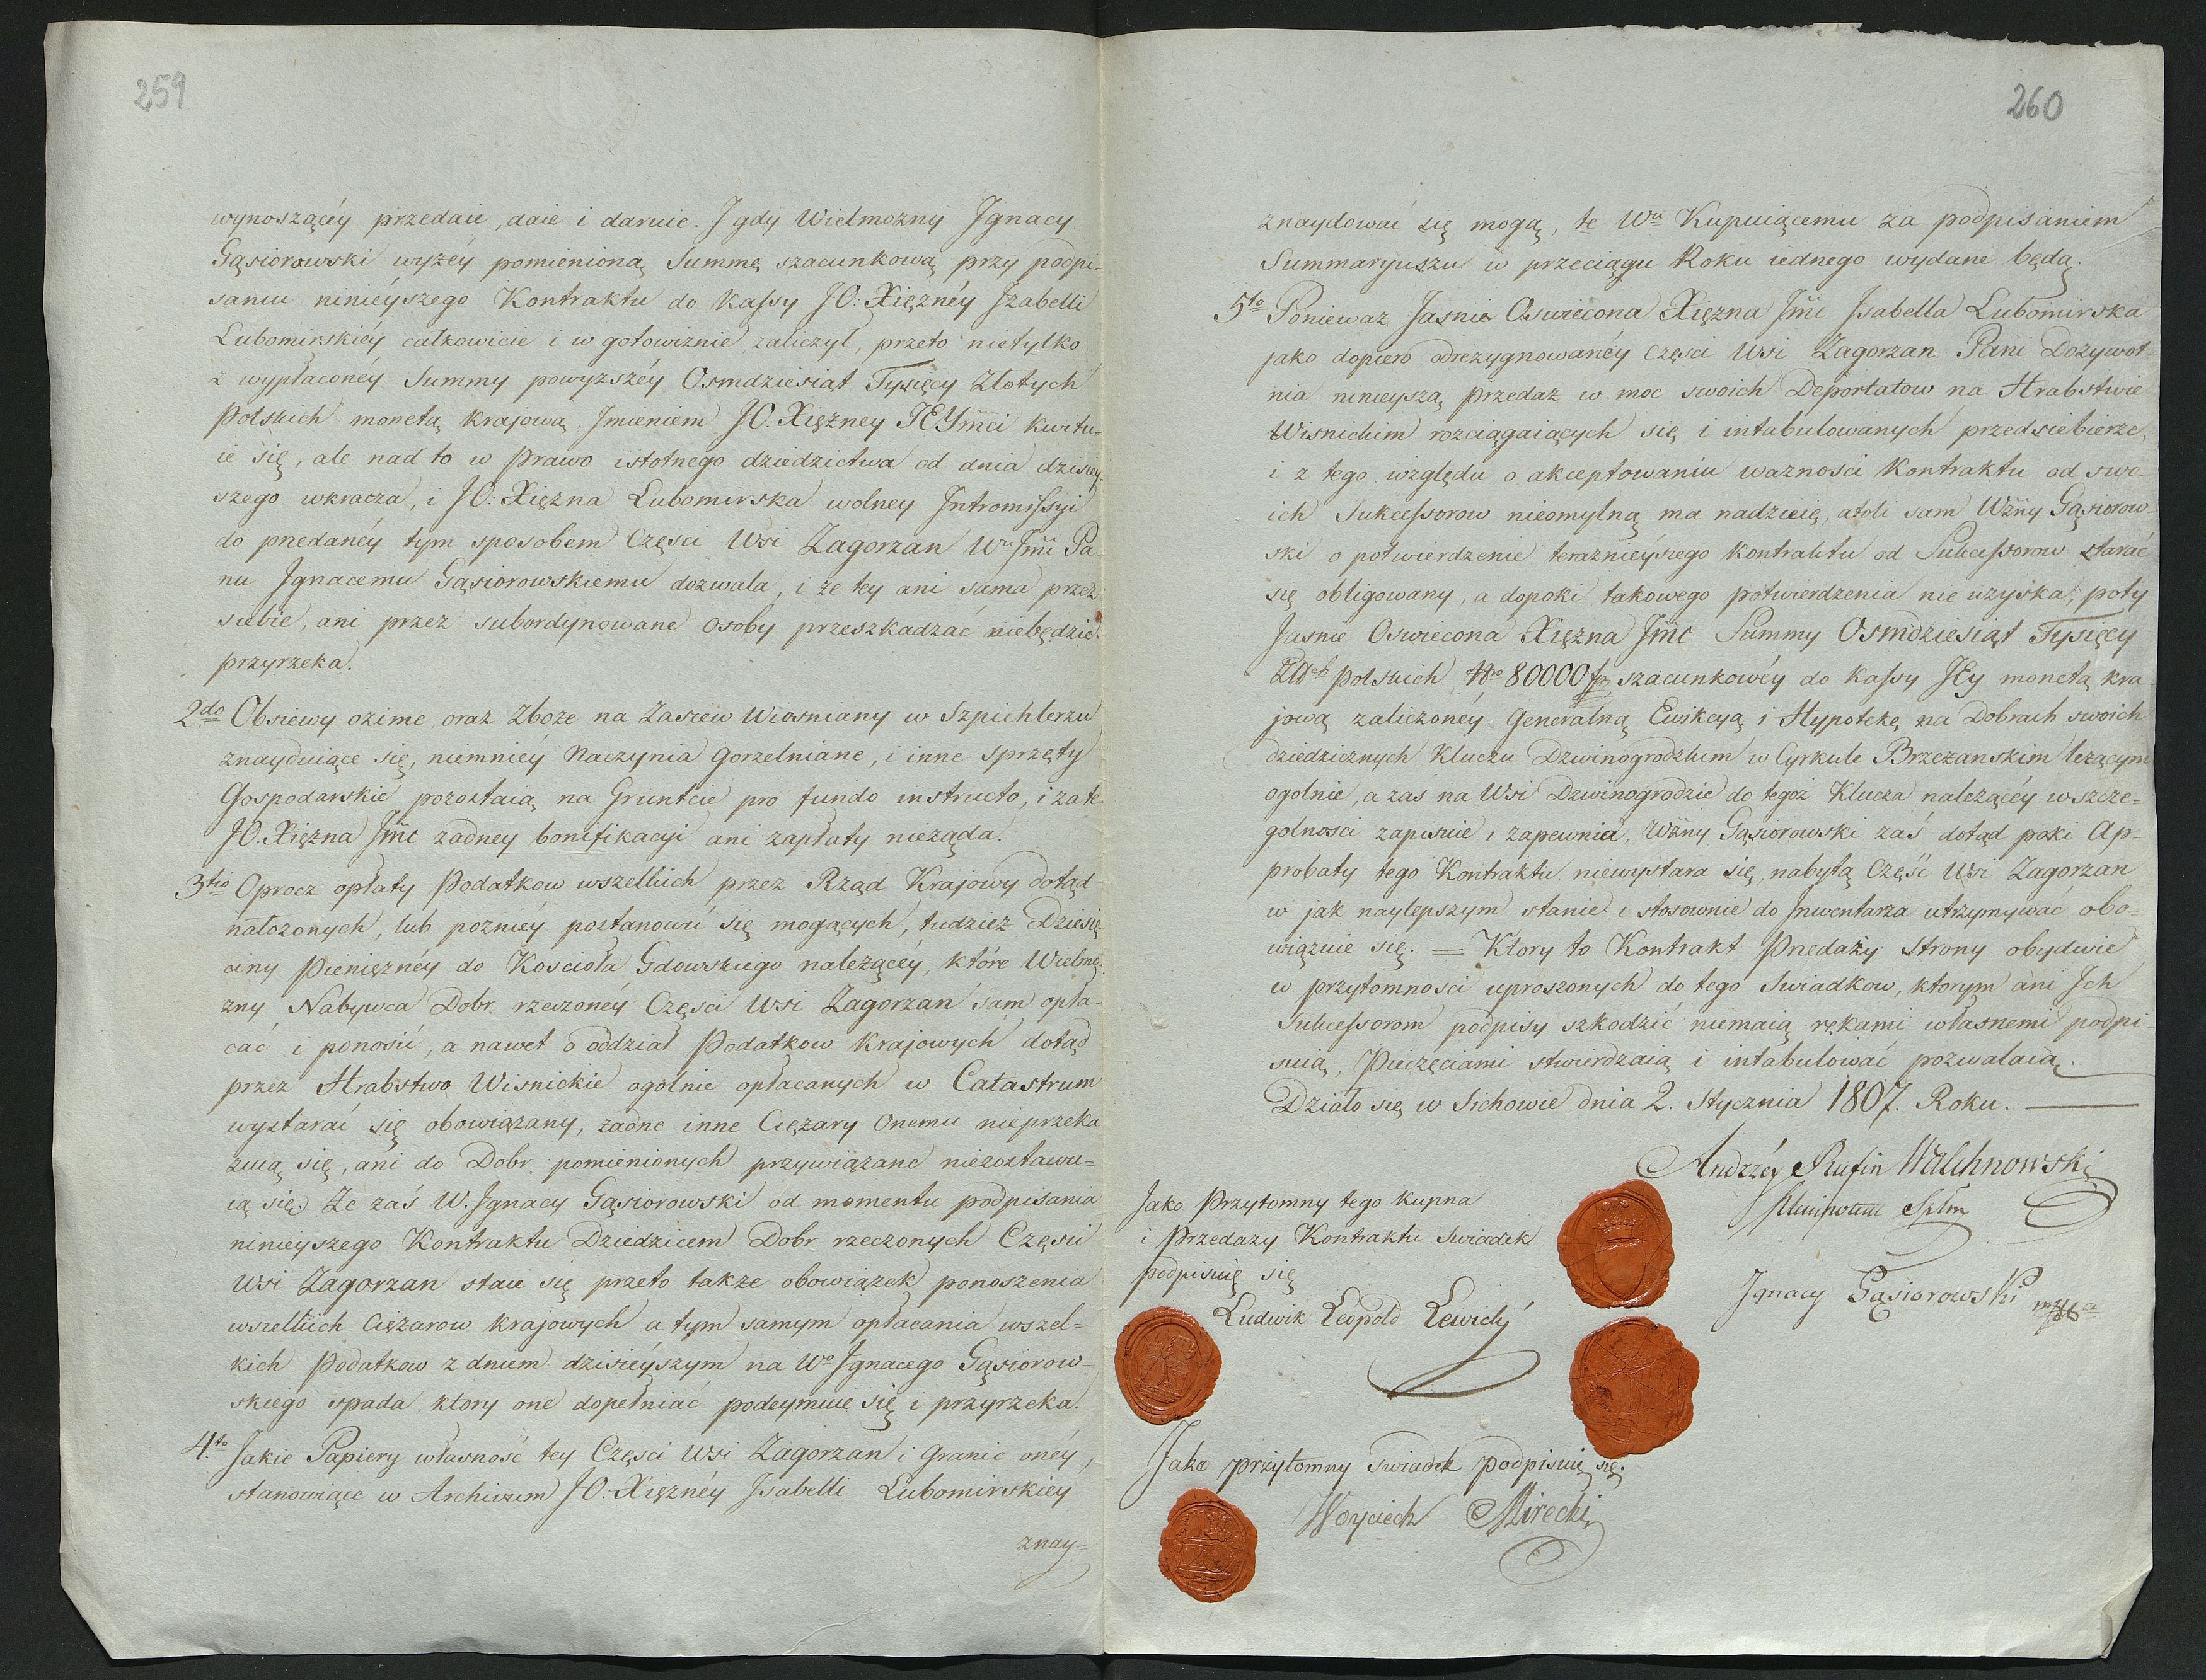 259
wynoszącéy przedaie, daie i daruie. J gdy Wielmozny Jgnacy
Gąsiorowski wyzéy pomienioną Summę szacunkową przy podpi-
saniu niniéyszego Kontraktu do Kassy JO: Xięznéy Jzabelli
Lubomirskiéy całkowicie i w gotowiznie zaliczył, przeto nietylko
z wypłaconéy Summy powyzszéy Osmdziesiąt Tysięcy Złotych
Polskich monetą krajową Jmieniem JO: Xięzney JEYmci kwitu-
ie się, ale nad to w Prawo istotnego dziedzictwa od dnia dzisiey-
szego wkracza, i JO: Xięzna Lubomirska wolney Jntromissyi
do przedanéy tym sposobem Częsci Wsi Zagorzan Wu Jmci Pa-
nu Jgnacemu Gąsiorowskiemu dozwala, i ze tey ani sama przez
siebie, ani przez subordynowane osoby przeszkadzać niebędzie
przyrzeka.
2do Obsiewy ozime, oraz Zboze na Zasiew Wiosniany w Szpichlerzu
znayduiące się, niemniéy Naczynia gorzelniane, i inne sprzęty
Gospodarskie pozostaią na Gruntcie pro fundo instructo, i za te
JO. Xięzna Jmc zadney bonifikacyi ani zapłaty nieząda.
3tio Oprocz opłaty Podatkow wszelkich przez Rząd Krajowy dotąd
nałozonych, lub pozniéy postanowić się mogących, tudziez Dziesię
ciny Pienięznéy do Koscioła Gdowskiego nalezącéy, które Wielmo-
zny Nabywca Dobr. rzeczonéy Częsci Wsi Zagorzan sam opła-
cać i ponosić, a nawet o oddział Podatkow krajowych dotąd
przez Hrabstwo Wisnickie ogolnie opłacanych w Catastrum
wystarać się obowiązany, zadne inne Cięzary onemu nieprzeka
zuią się, ani do Dobr. pomienionych przywiązane niezostawu=
ią się. Ze zaś W. Jgnacy Gąsiorowski od momentu podpisania
ninieyszego Kontraktu Dziedzicem Dobr rzeczonych Częsci
Wsi Zagorzan staie się przeto takze obowiązek ponoszenia
wszelkich Cięzarow krajowych a tym samym opłacania wszel=
kich Podatkow z dniem dzisiéyszym na Wo Jgnacego Gąsiorow-
skiego spada, ktory one dopełniać podeymuie się i przyrzeka.
4to Jakie Papiery własność tey Częsci Wsi Zagorzan i Granic onéy,
stanowiące w Archivum JO: Xięznéy Jsabelli Lubomirskiéy
znay=
260
znaydować się mogą, te Wu Kupuiącemu za podpisaniem
Summaryuszu w przeciągu Roku iednego wydane będą.
5to Poniewaz Jasnie Oswiecona Xięzna Jmc Jsabella Lubomirska
jako dopiero odrezygnowanéy Częsci Wsi Zagorzan Pani Dozywot-
nia ninieyszą Przedaz w moc swoich Deportatow na Hrabstwie
Wisnickim rozciągaiących się i intabulowanych przedsiebierze,
i z tego względu o akceptowaniu waznosci Kontraktu od swo-
ich Sukcessorow nieomylną ma nadzieię, atoli sam Wzny Gąsiorow-
ski o potwierdzenie teraznieyszego kontraktu od Sukcessorow starać
się obligowany, a dopoki takowego potwierdzenia nie uzyska, poty
Jasnie Oswiecona Xięzna Jmc Summy Osmdziesiąt Tysięcy
Złłch Polskich Nro 80000 fp szacunkowéy do kassy JEy monetą kra
jową zaliczonéy Generalną Ewikcyą i Hypotekę na Dobrach swoich
dziedzicznych Kluczu Dzwinogrodzkim w Cyrkule Brzezanskim lezącym
ogolnie, a zas na Wsi Dzwinogrodzie do tegoz Klucza nalezącéy w szcze=
golnosci zapisuie i zapewnia, Wzny Gąsiorowski zaś dotąd poki Ap-
probaty tego Kontraktu niewystara się, nabytą Część Wsi Zagorzan
w jak naylepszym stanie i stosownie do Jnwentarza utrzymywać obo=
wiązuie się. = Ktory to Kontrakt Przedaży Strony obydwie
w przytomnosci uproszonych do tego Swiadkow, ktorym ani Jch
Sukcessorom podpisy szkodzić niemaią rękami własnemi podpi-
suią, Pieczęciami stwierdzaią i intabulować pozwalaią.
Działo się w Sichowie dnia 2. Stycznia 1807. Roku.
Andrzéy Rufin Walchnowski
Jgnacy Gąsiorowski
Jako Przytomny tego Kupna
i Przedazy Kontraktu Swiadek
podpisuię się
Ludwik Leopold Lewicky
Jako przytomny Swiadek podpisuię się.
Woyciech Mirecki